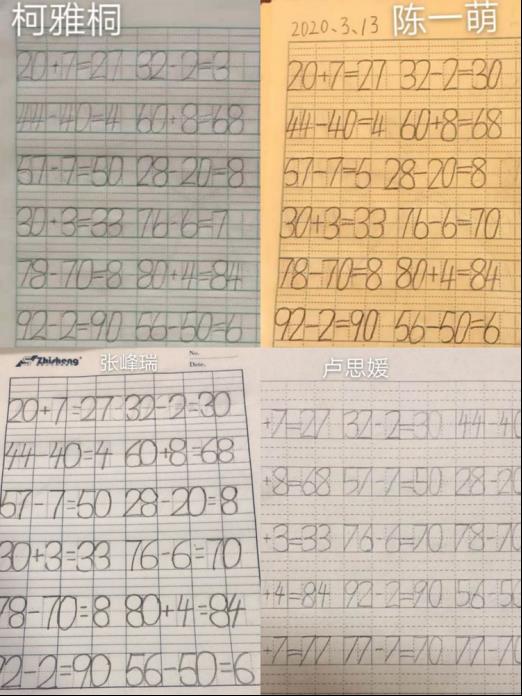 柯雅桐
20+7=27 32-2=3
44-40=4 60+8=68
57-7=50 28-20=8
30+3=33 76-6=7
78-70=8 80+4=84
92-2=90 56-50=6
2020.3.13 陈一萌
20+7=27 32-2=30
44-40=4 60+8=68
57-7=5 28-20=8
30+3=33 76-6=70
78-70=8 80+4=84
92-2=90 56-50=6
Zhisheng 张峰瑞 No.
Date.
20+7=27 32-2=30
44-40=4 60+8=68
57-7=50 28-20=8
30+3=33 76-6=70
78-70=8 80+4=84
92-2=90 56-50=6
卢思媛
+7=27 32-2=30 44-40
+8=68 57-7=50 28-20
+3=33 76-6=70 78-70
+4=84 92-2=90 56-50
+7=77 77-7=70 77-70